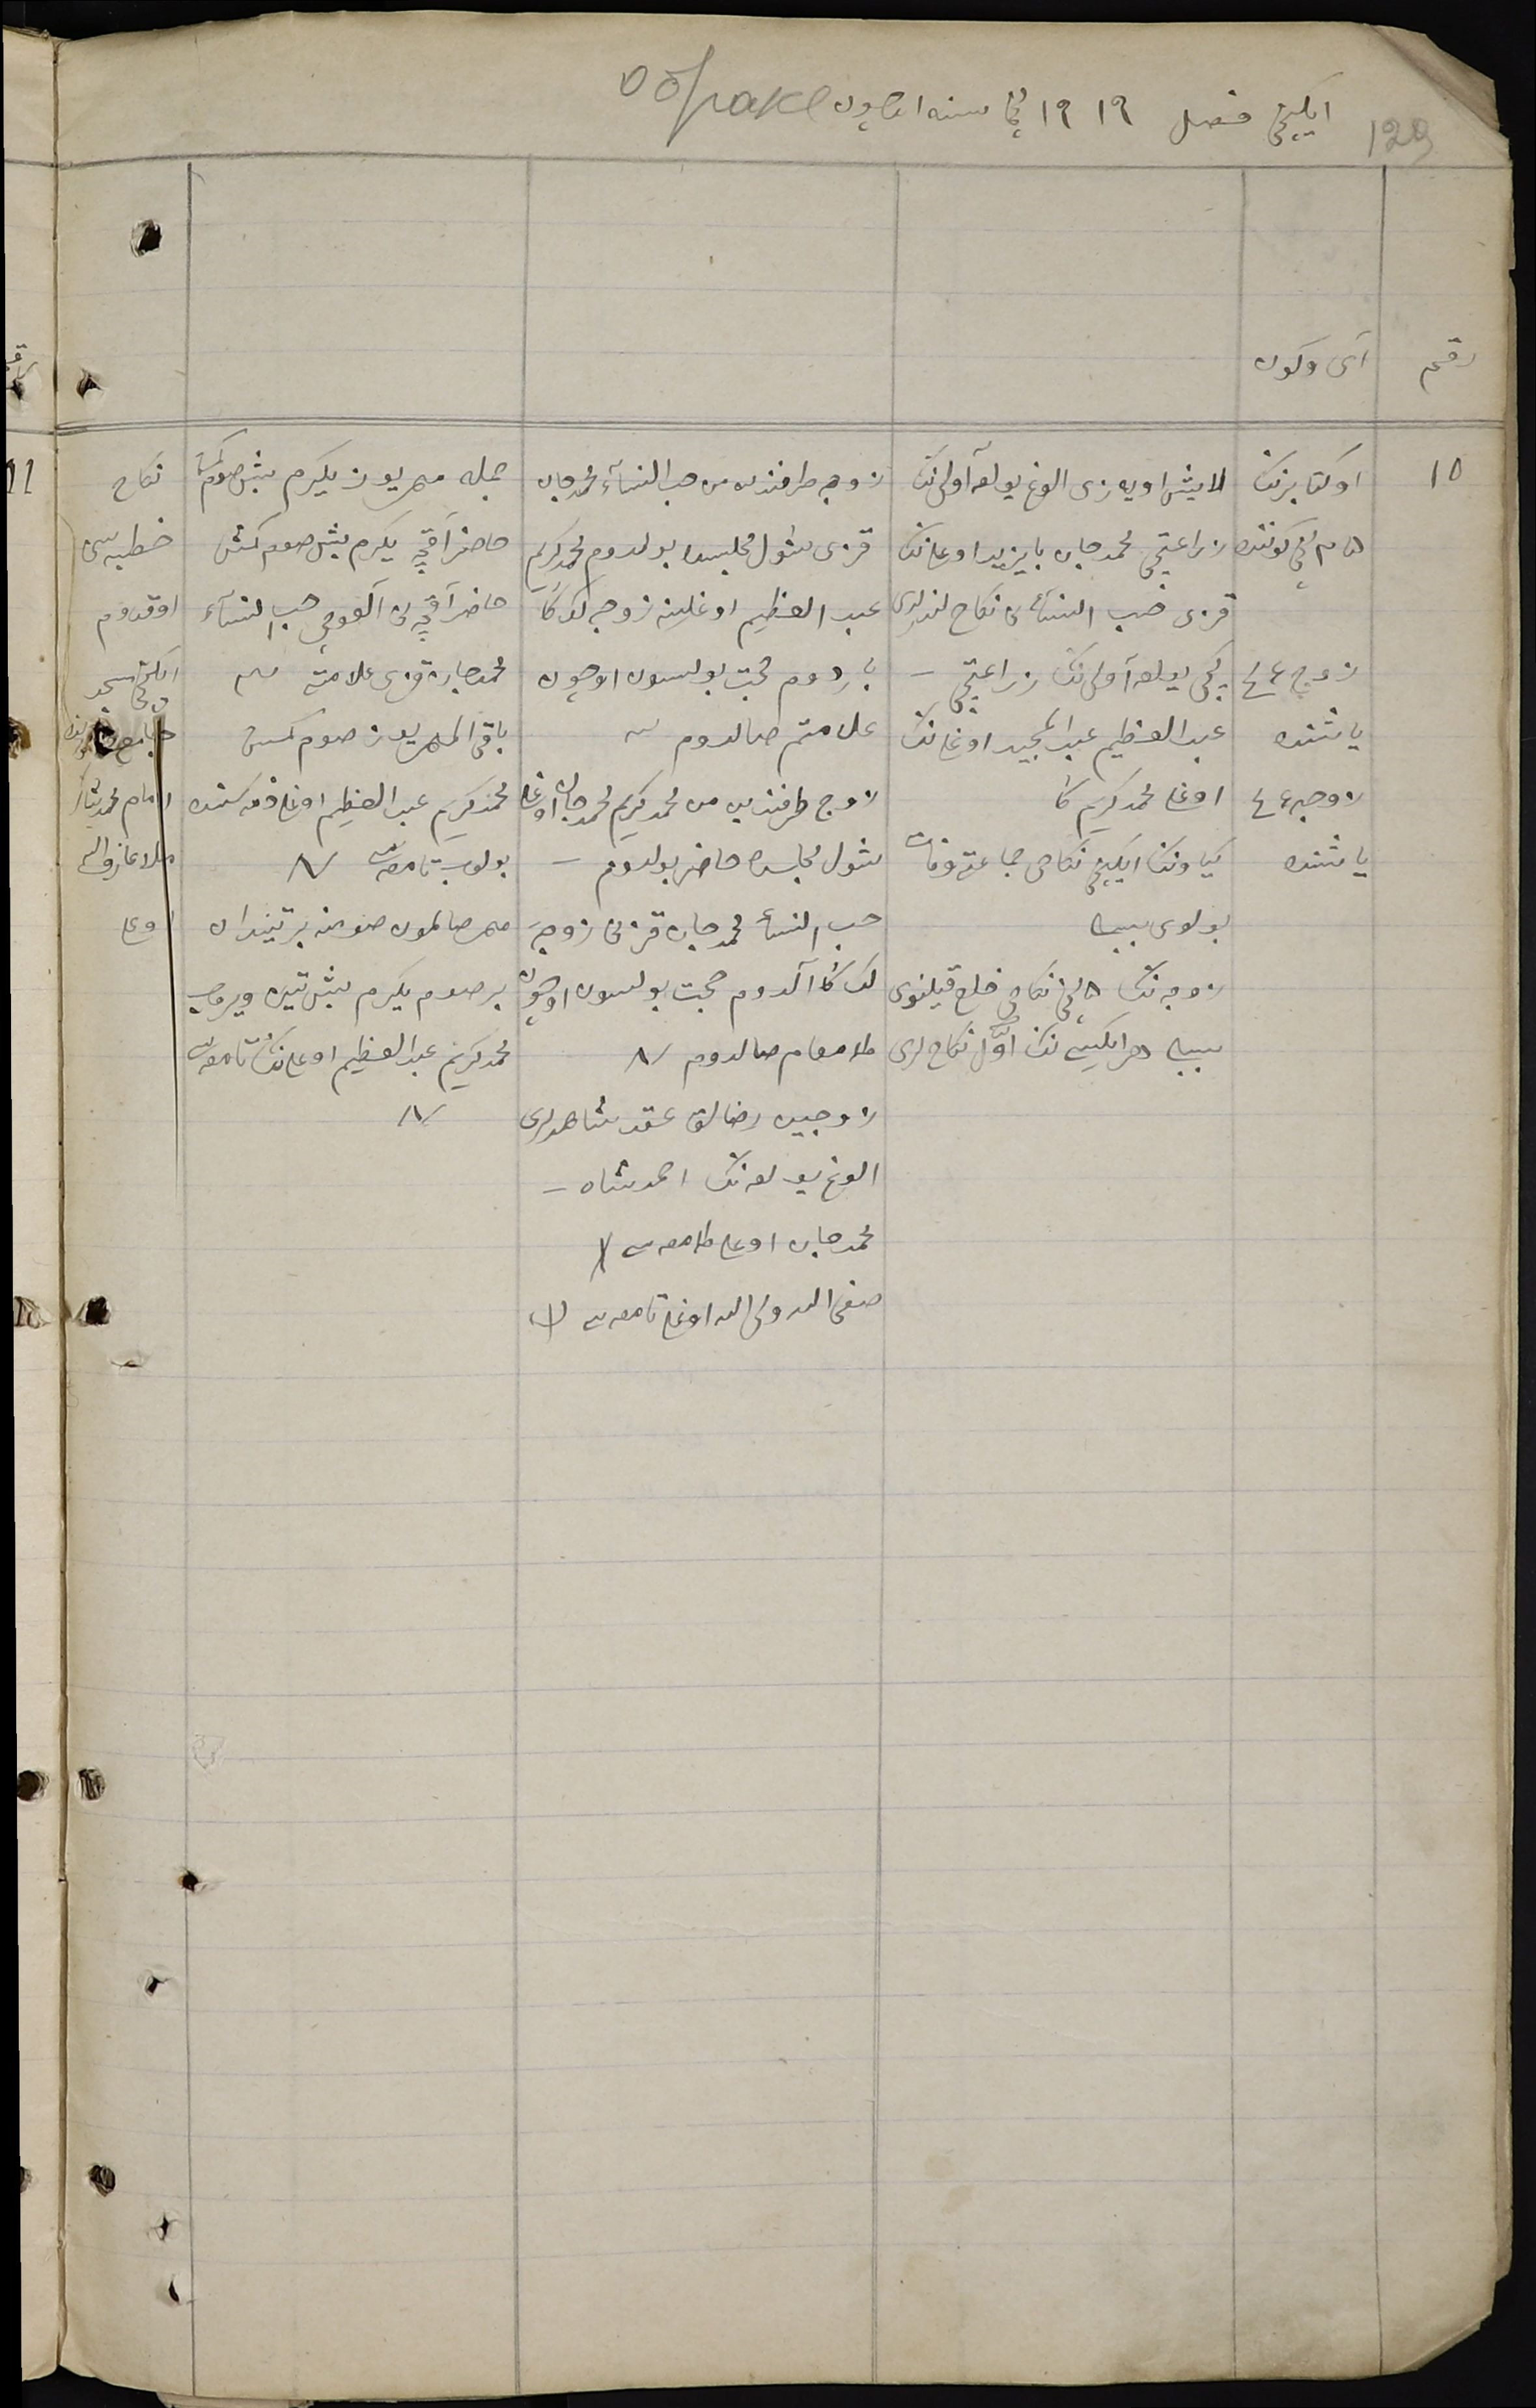 129
ایکنچی فصل ۱۹۱۹ نچی سنه اوچون О браке
رقم
آی و کون
10
اوکتابرنڭ
۵ م نچی کوننده
زوج ٤٤
یاشنده
زوجه ٤٤
یاشنده
لایش اویازی الوغ یولغه آولی نڭ
زراعتچی محمدجان بایزید اوغلی نڭ
قزی حب النسآء نی نکاح لندردی
کچی یولغه آولی نڭ زراعتچی –
عبد العظیم عبد المجید اوغلی نڭ
اوغلی محمدکریم کا
کیاونڭ ایکنچی نکاحی جماعتی وفات
بولوی سببلی
زوجه نڭ ۵ نچی نکاحی خلع قیلنوی
سببلی هر ایکیسی نڭ اول نکاح لری
زوجه طرفندن من حب النسآء محمدجان
قزی شول مجلسده بولدوم محمدکریم
عبد العظیم اوغلینه زوجه لککا
باردوم حجت بولسون اوچون
علامتم صالدوم
زوج طرفندین من محمدکریم محمدجان اوغلی
شول مجلسده حاضر بولدوم –
حب النسآء محمدجان قزنی زوجه
لککا آلدوم حجت بولسون اوچون
طامغام صالدوم
زوجین رضالق عقد شاهدلری
الوغ یولغه نڭ احمدشاه –
محمدجان اوغلی طامغه سی
صفی الله ولی الله اوغلی تامغه سی
جمله مهر یوز یکرم بیش صوم کمش
حاضر آقچه یکرم بیش صوم کمش
حاضر آقچه نی آلغوچی حب النسآء
محمدجان قزی علامتی
باقی المهر یوز صوم کمش
محمدکریم عبد العظیم اوغلی ذمه سنده
بولوب تامغه سی
مهر صالمون صومنه بر تیندان
بر صوم یکرم بیش تین ویروب
محمدکریم عبد العظیم اوغلی نڭ تامغه سی
نکاح
خطبه سی
اوقدوم
ایکنچی مسجد
جامع
امام محمدشاکر
ملا غازی
اوغلی
11